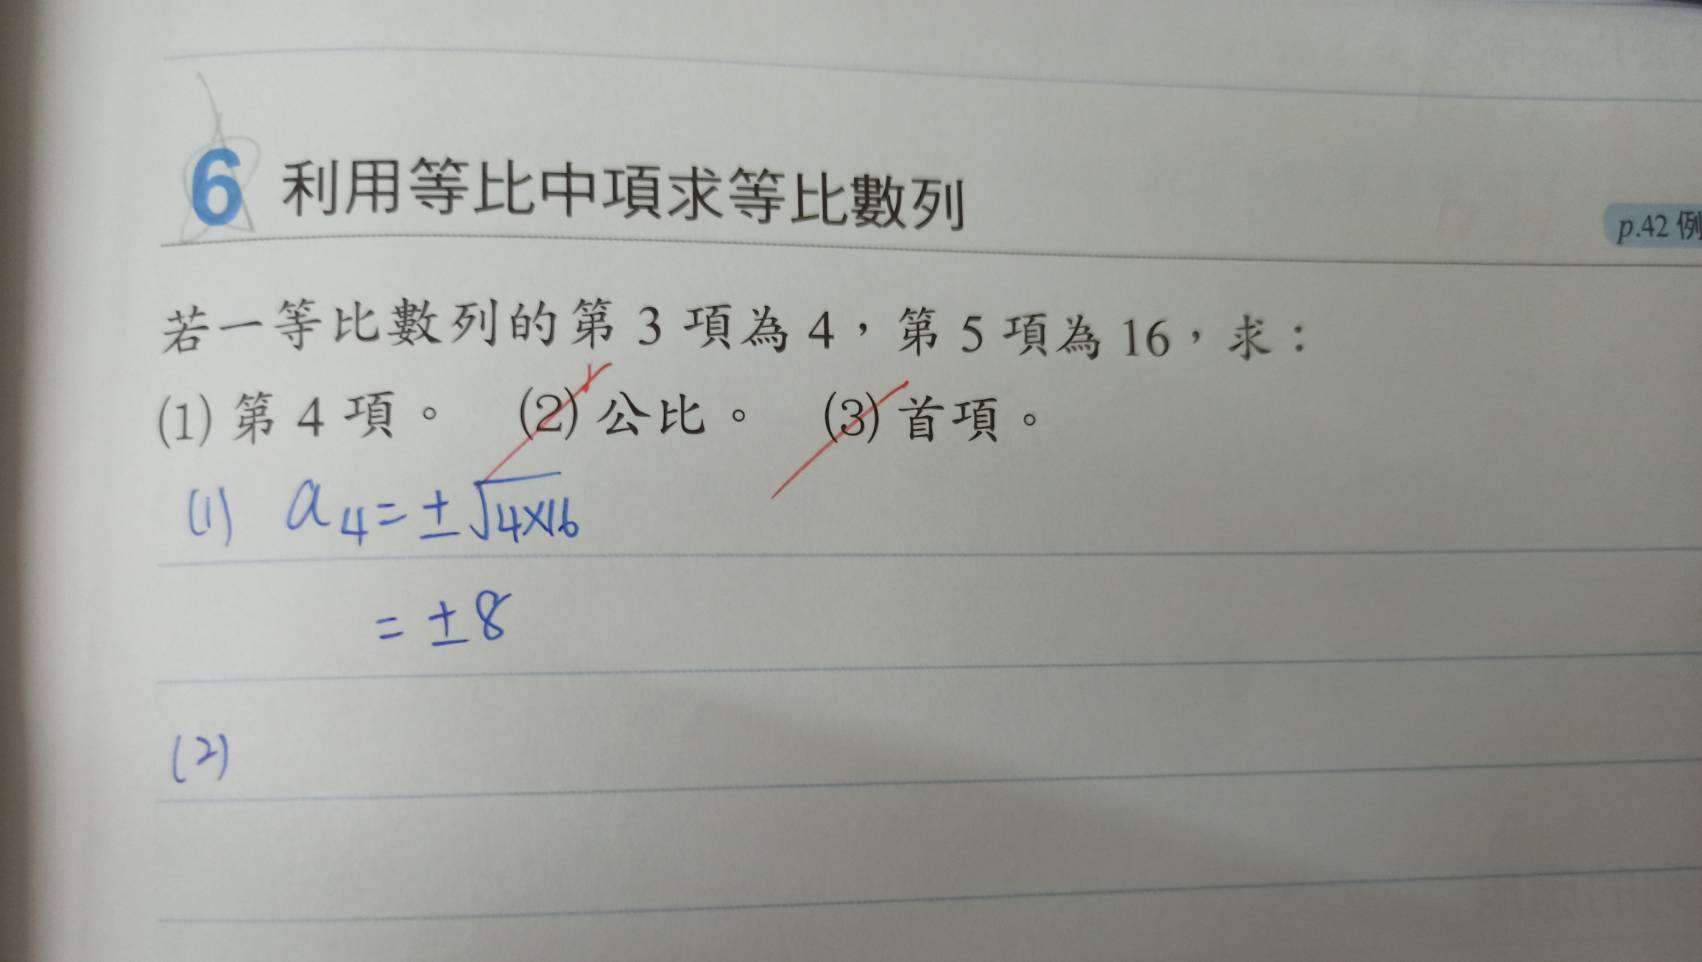 6 利用等比中項求等比數列
p.42 例
若一等比數列的第 3 項為 4，第 5 項為 16，求：
(1) 第 4 項。 (2) 公比。 (3) 首項。
(1) a₄ = ±√4×16
= ±8
(2)